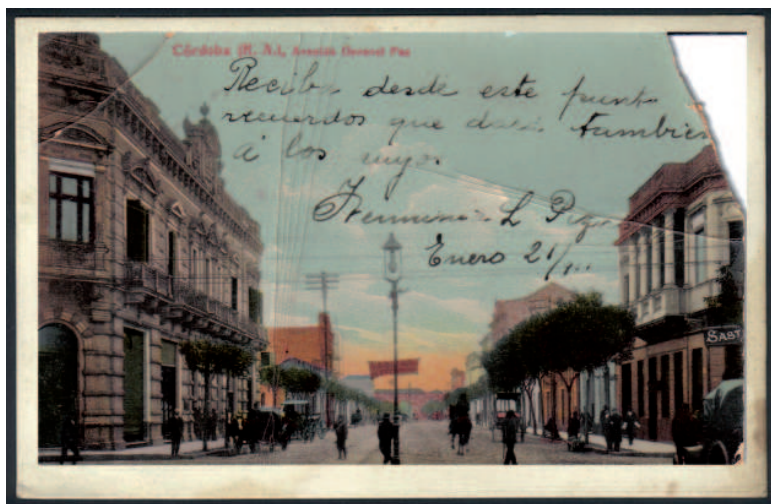 Córdoba (R. A.), Avenida General Paz
Reciba desde este punto
recuerdos que dará tambien
á los suyos
L
Enero 21
SAST